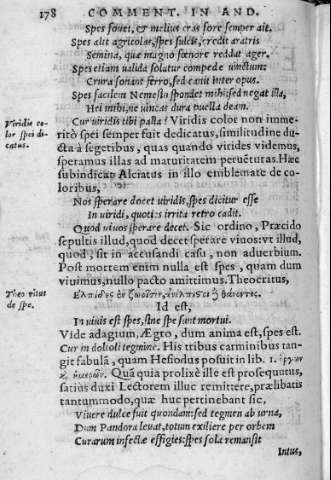 178 COMMENT. IN AND.
Spes fouet, & melius cras fore semper ait.
Spes alit agricolas, spes sulcis, credit aratris
Semina, quæ magno fœnore reddat ager.
Spes etiam valida solatur compede vinctum:
Crura sonant ferro, sed canit inter opus.
Spes facilem Nemesin spondet mihi: sed negat illa,
Hei mihi, ne vincas dura puella deam.
Viridis co-
lor spei di-
catus.
Cur viridis tibi palla? Viridis color non imme-
ritò spei semper fuit dedicatus, similitudine du-
cta à segetibus, quas quando virides videmus,
speramus illas ad maturitatem peruēturas. Hæc
subindicat Alciatus in illo emblemate de co-
loribus,
Nos sperare docet viridis, spes dicitur esse
In viridi, quoties irrita retro cadit.
Quod viuos sperare decet. Sic ordino, Præcido
sepultis illud, quod decet sperare viuos: vt illud,
quod, sit in accusandi casu, non aduerbium.
Post mortem enim nulla est spes, quam dum
viuimus, nullo pacto amittimus. Theocritus,
Theocritus
de spe.
Ἐλπίδες ἐν ζωοῖσιν, ἀνέλπιστοι ἢ θανόντες.
Id est,
In viuis est spes, sine spe sunt mortui.
Vide adagium, Ægro, dum anima est, spes est.
Cur in dolioli tegmine. His tribus carminibus tan-
git fabulā, quam Hesiodus posuit in lib. 1. ἔργων
κ ἡμερῶν. Quā quia prolixè ille est prosequutus,
satius duxi Lectorem illuc remittere, prælibatis
tantummodo, quæ huc pertinebant sic,
Viuere dulce fuit quondam: sed tegmen ab vrna,
Dum Pandora leuat, totum exiliere per orbem
Curarum infectæ effigies: spes sola remansit
Intus,